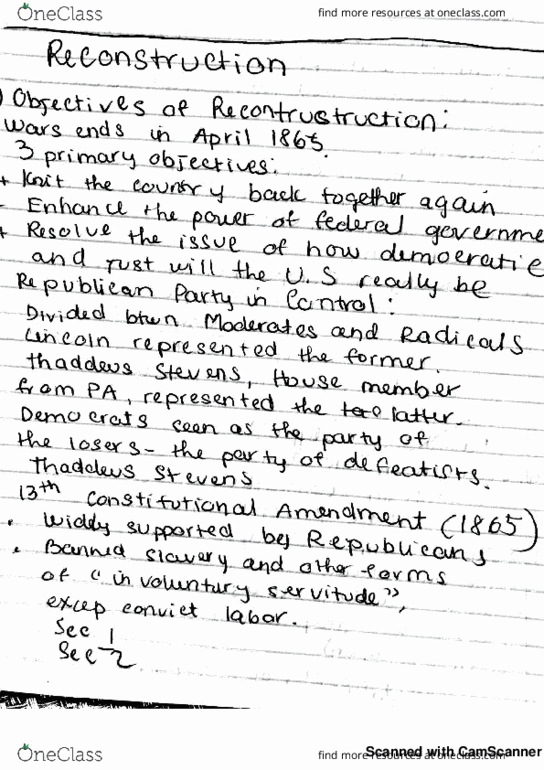 OneClass
find more resources at oneclass.com
Reconstruction
Objectives of Recontrustruction:
Wars ends in April 1865.
3 primary objectives:
+ Knit the country back together again
- Enhance the power of federal governme
+ Resolve the issue of how democratie
and rust will the U.S really be
Republican Party in Control:
Divided btwn Moderates and Radicals
Lincoln represented the former.
Thaddeus Stevens, House member
from PA, represented the latter.
Democrats seen as the party of
the losers - the party of defeatists.
Thaddeus Stevens
13th Constitutional Amendment (1865)
• Widdy supported by Republicans
• Banned slavery and other forms
of "in voluntury servitude",
excep convict labor.
Sec 1
Sec 2
OneClass
find more resources at oneclass.com
Scanned with CamScanner